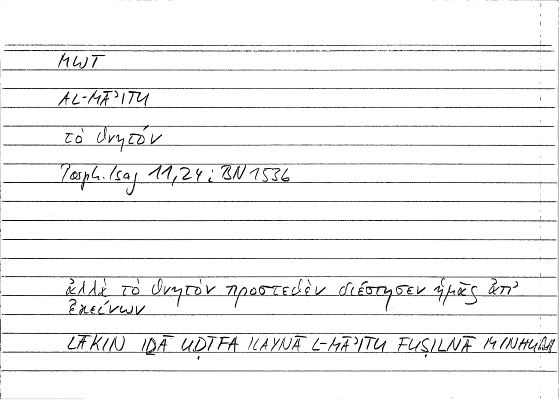 MWT
AL-MĀʾITU
τὸ θνητόν
Porph. Isag 11,24; BN 1536
ἀλλὰ τὸ θνητὸν προστεθὲν διέστησεν ἡμᾶς ἀπ'
ἐκείνων
LĀKIN IḎĀ UḌĪFA ILAYNĀ L-MĀʾITU FUṢILNĀ MINHUM